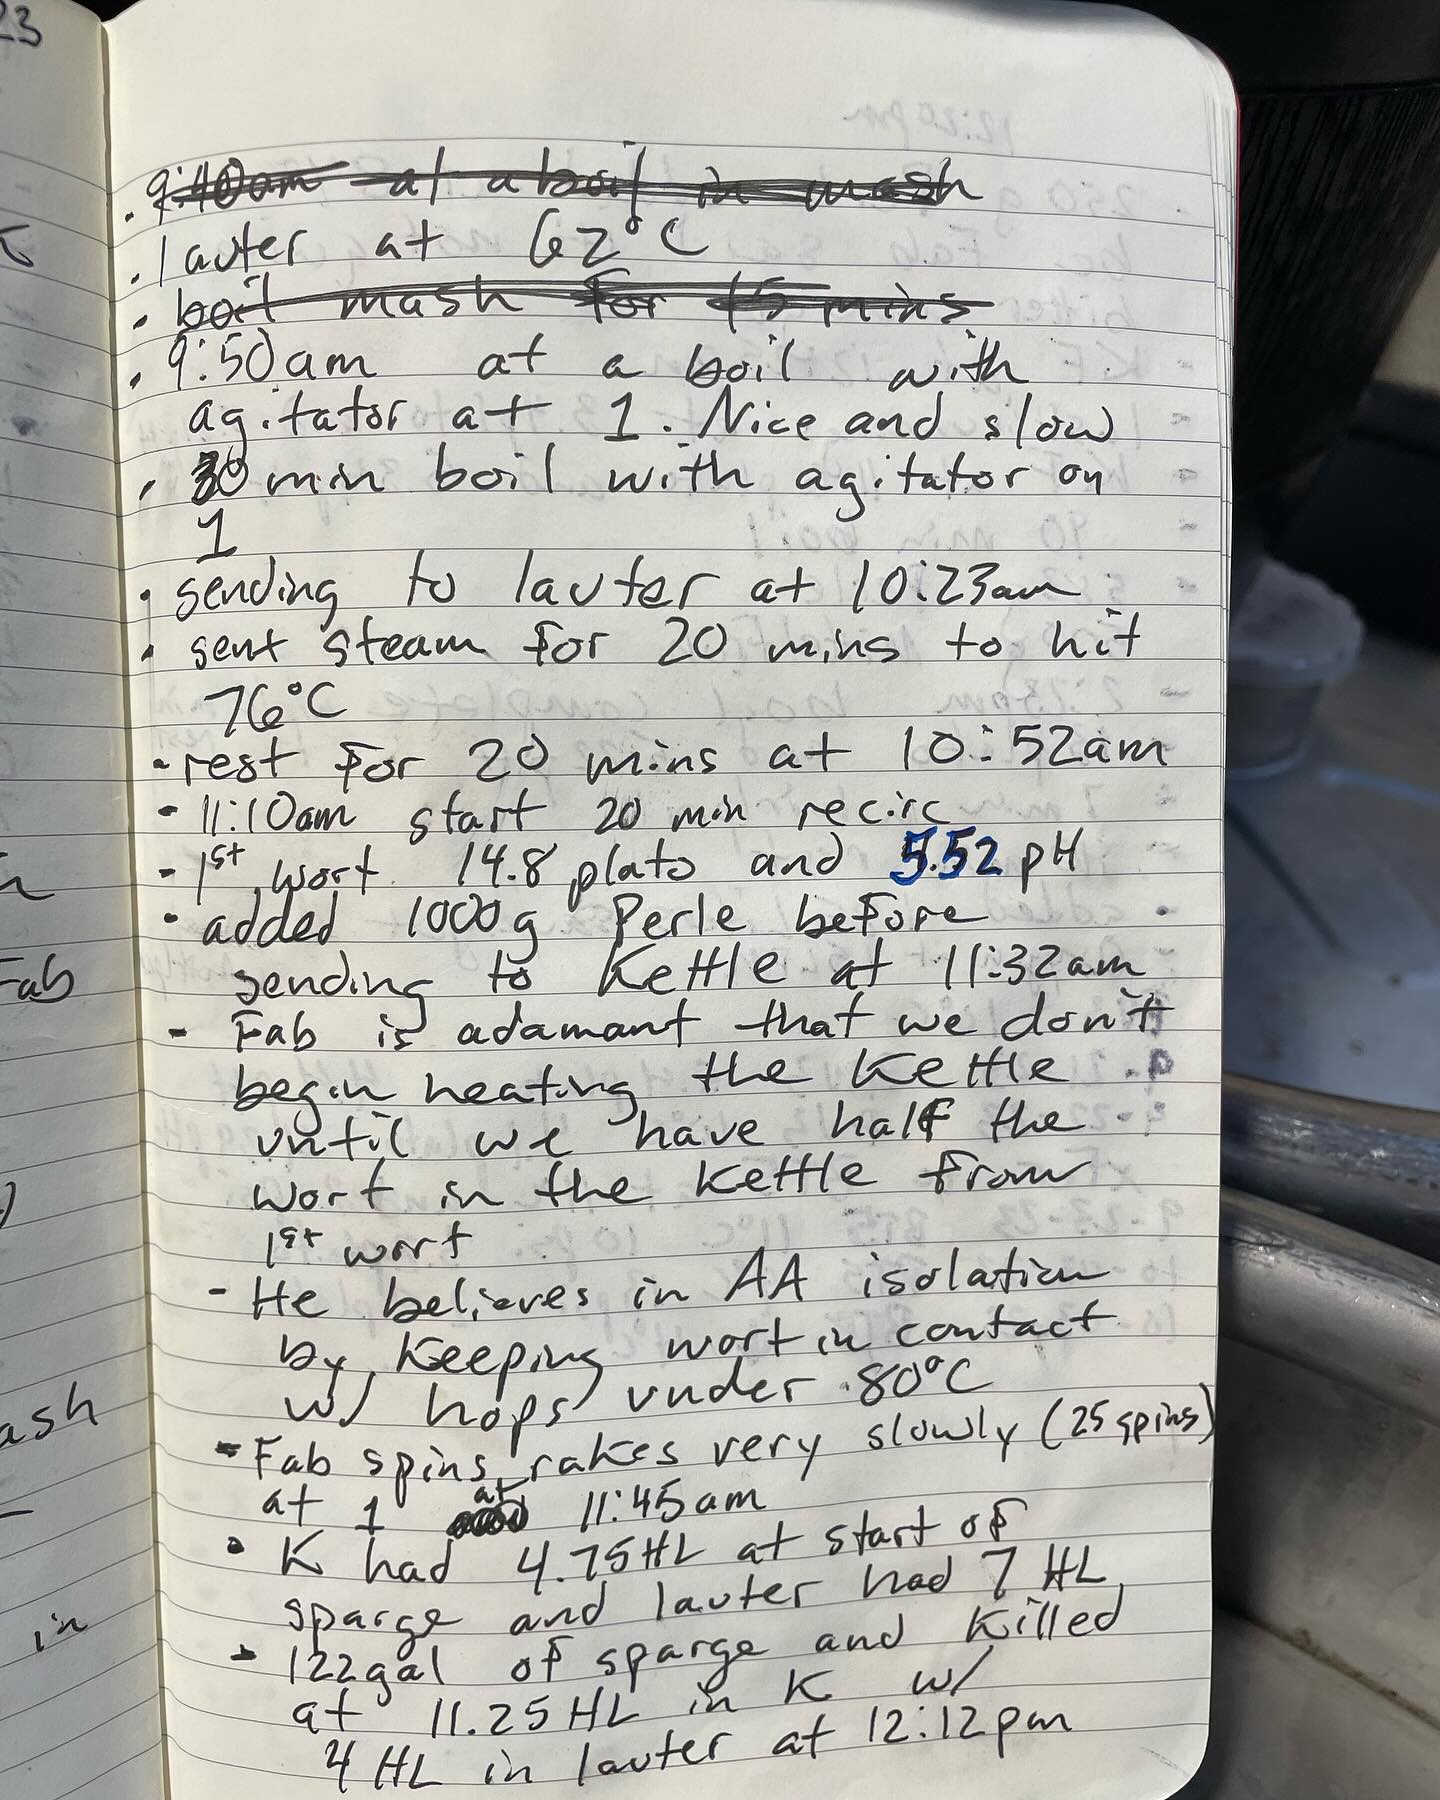 23
· 9:40am at a boil in mash
· lauter at 62°C
· boil mash for 15 mins
· 9:50am at a boil with
agitator at 1. Nice and slow
· 30 min boil with agitator on
1
· sending to lauter at 10:23am
· sent steam for 20 mins to hit
76°C
- rest for 20 mins at 10:52am
- 11:10am start 20 min recirc
- 1st wort 14.8 plato and 5.52 pH
· added 1000g Perle before
sending to Kettle at 11:32am
- Fab is adamant that we don't
begin heating the Kettle
until we have half the
wort in the Kettle from
1st wort
- He believes in AA isolation
by Keeping wort in contact
w/ hops under 80°C
- Fab spins rakes very slowly (25 spins)
at 1 at 11:45am
· K had 4.75HL at start of
sparge and lauter had 7 HL
- 122gal of sparge and Killed
at 11.25HL in K w/
4 HL in lauter at 12:12pm
Fab
ash
in